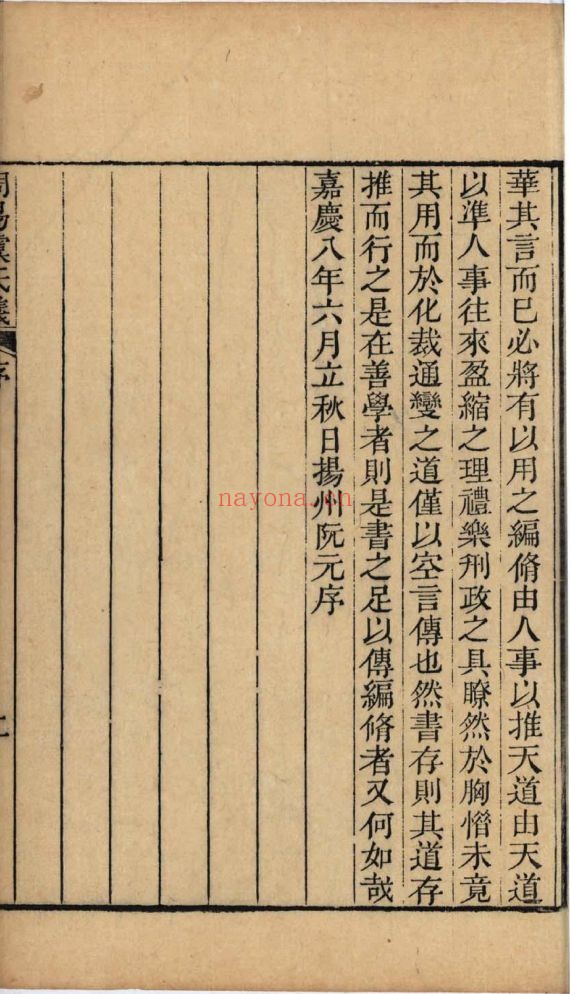 華其言而已必將有以用之編脩由人事以推天道由天道
以準人事往來盈縮之理禮樂刑政之具瞭然於胸㦧未竟
其用而於化裁通變之道僅以空言傳也然書存則其道存
推而行之是在善學者則是書之足以傳編脩者又何如哉
嘉慶八年六月立秋日揚州阮元序
周易虞氏義
序
二
nayona.cn